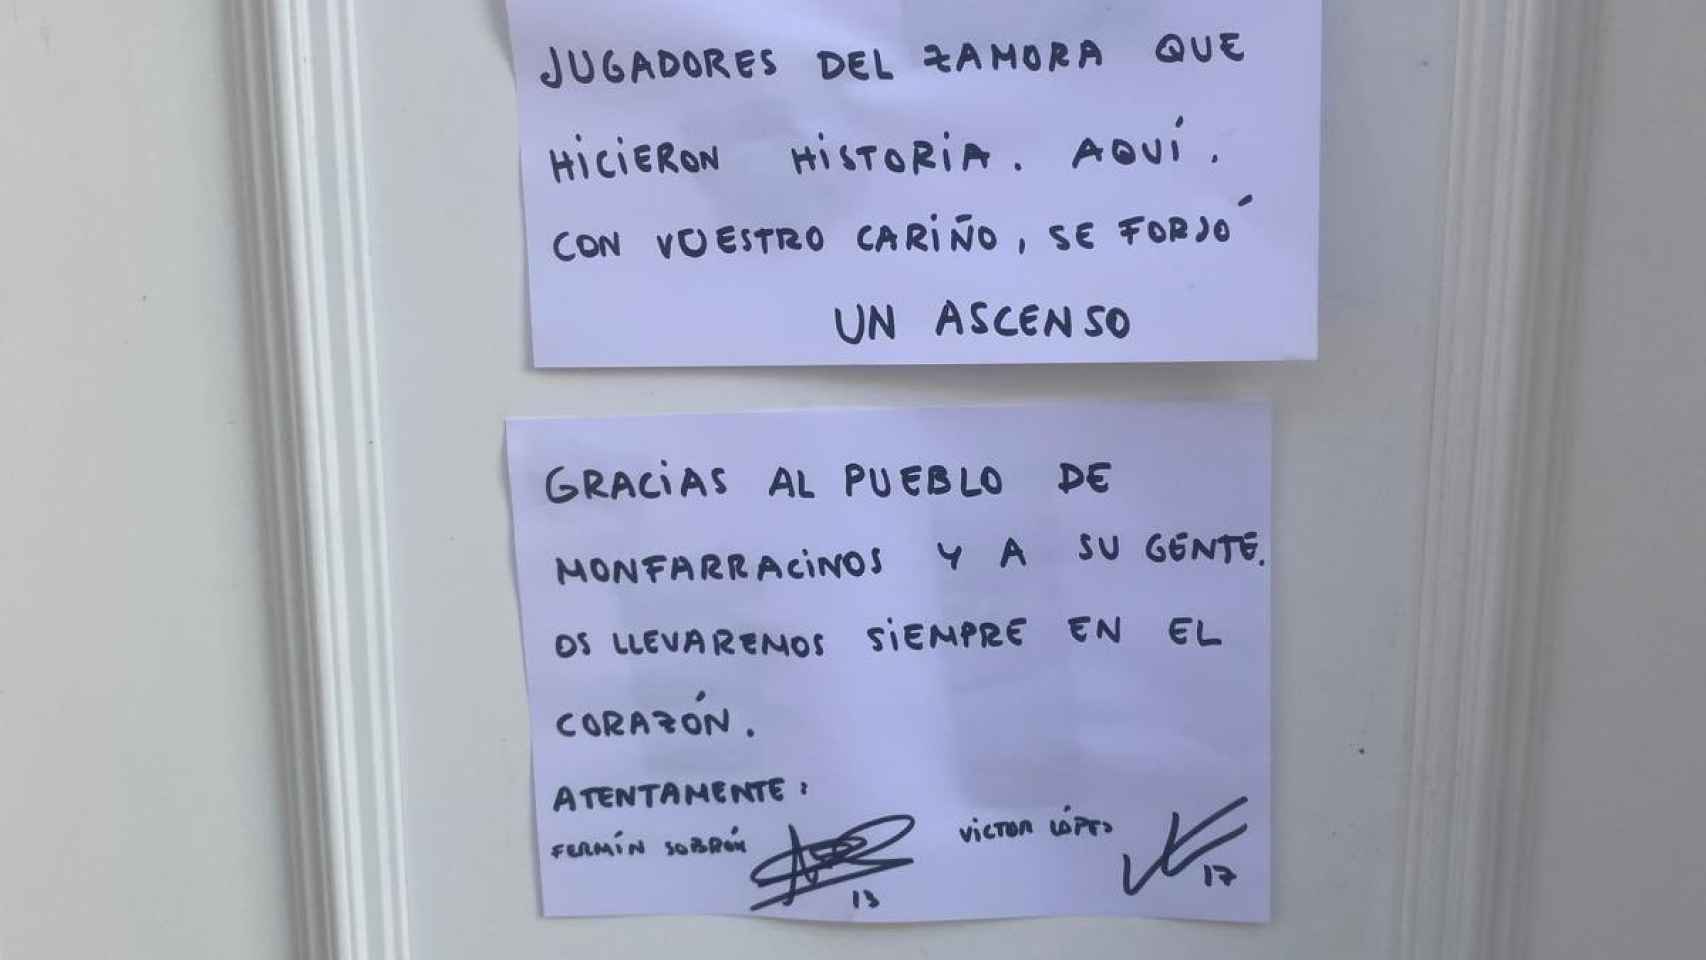 JUGADORES DEL ZAMORA QUE
HICIERON HISTORIA. AQUÍ.
CON VUESTRO CARIÑO, SE FORJÓ
UN ASCENSO
GRACIAS AL PUEBLO DE
MONFARRACINOS Y A SU GENTE.
OS LLEVAREMOS SIEMPRE EN EL
CORAZÓN.
ATENTAMENTE:
FERMÍN SOBRÓN VICTOR LÓPEZ
13 17